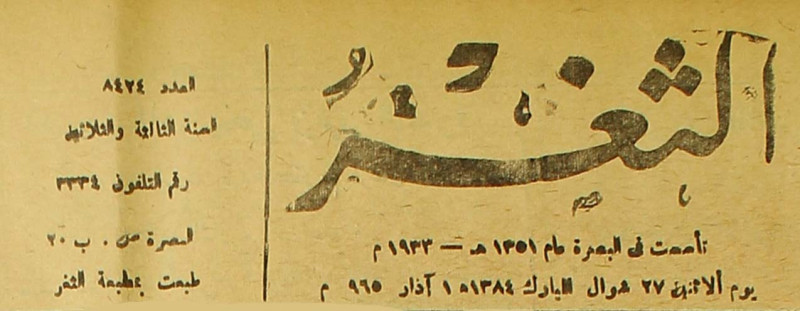 الثغر
تأسست في البصرة عام ١٣٥١ هـ — ١٩٣٣ م
يوم ألاثنين ٢٧ شوال المبارك ١٣٨٤ه ١ آذار ٩٦٥ م
العدد ٨٤٢٤
السنة الثالثة والثلاثين
رقم التلفون ٣٣٣٤
البصرة ص . ب ٢٠
طبعت بمطبعة الثغر